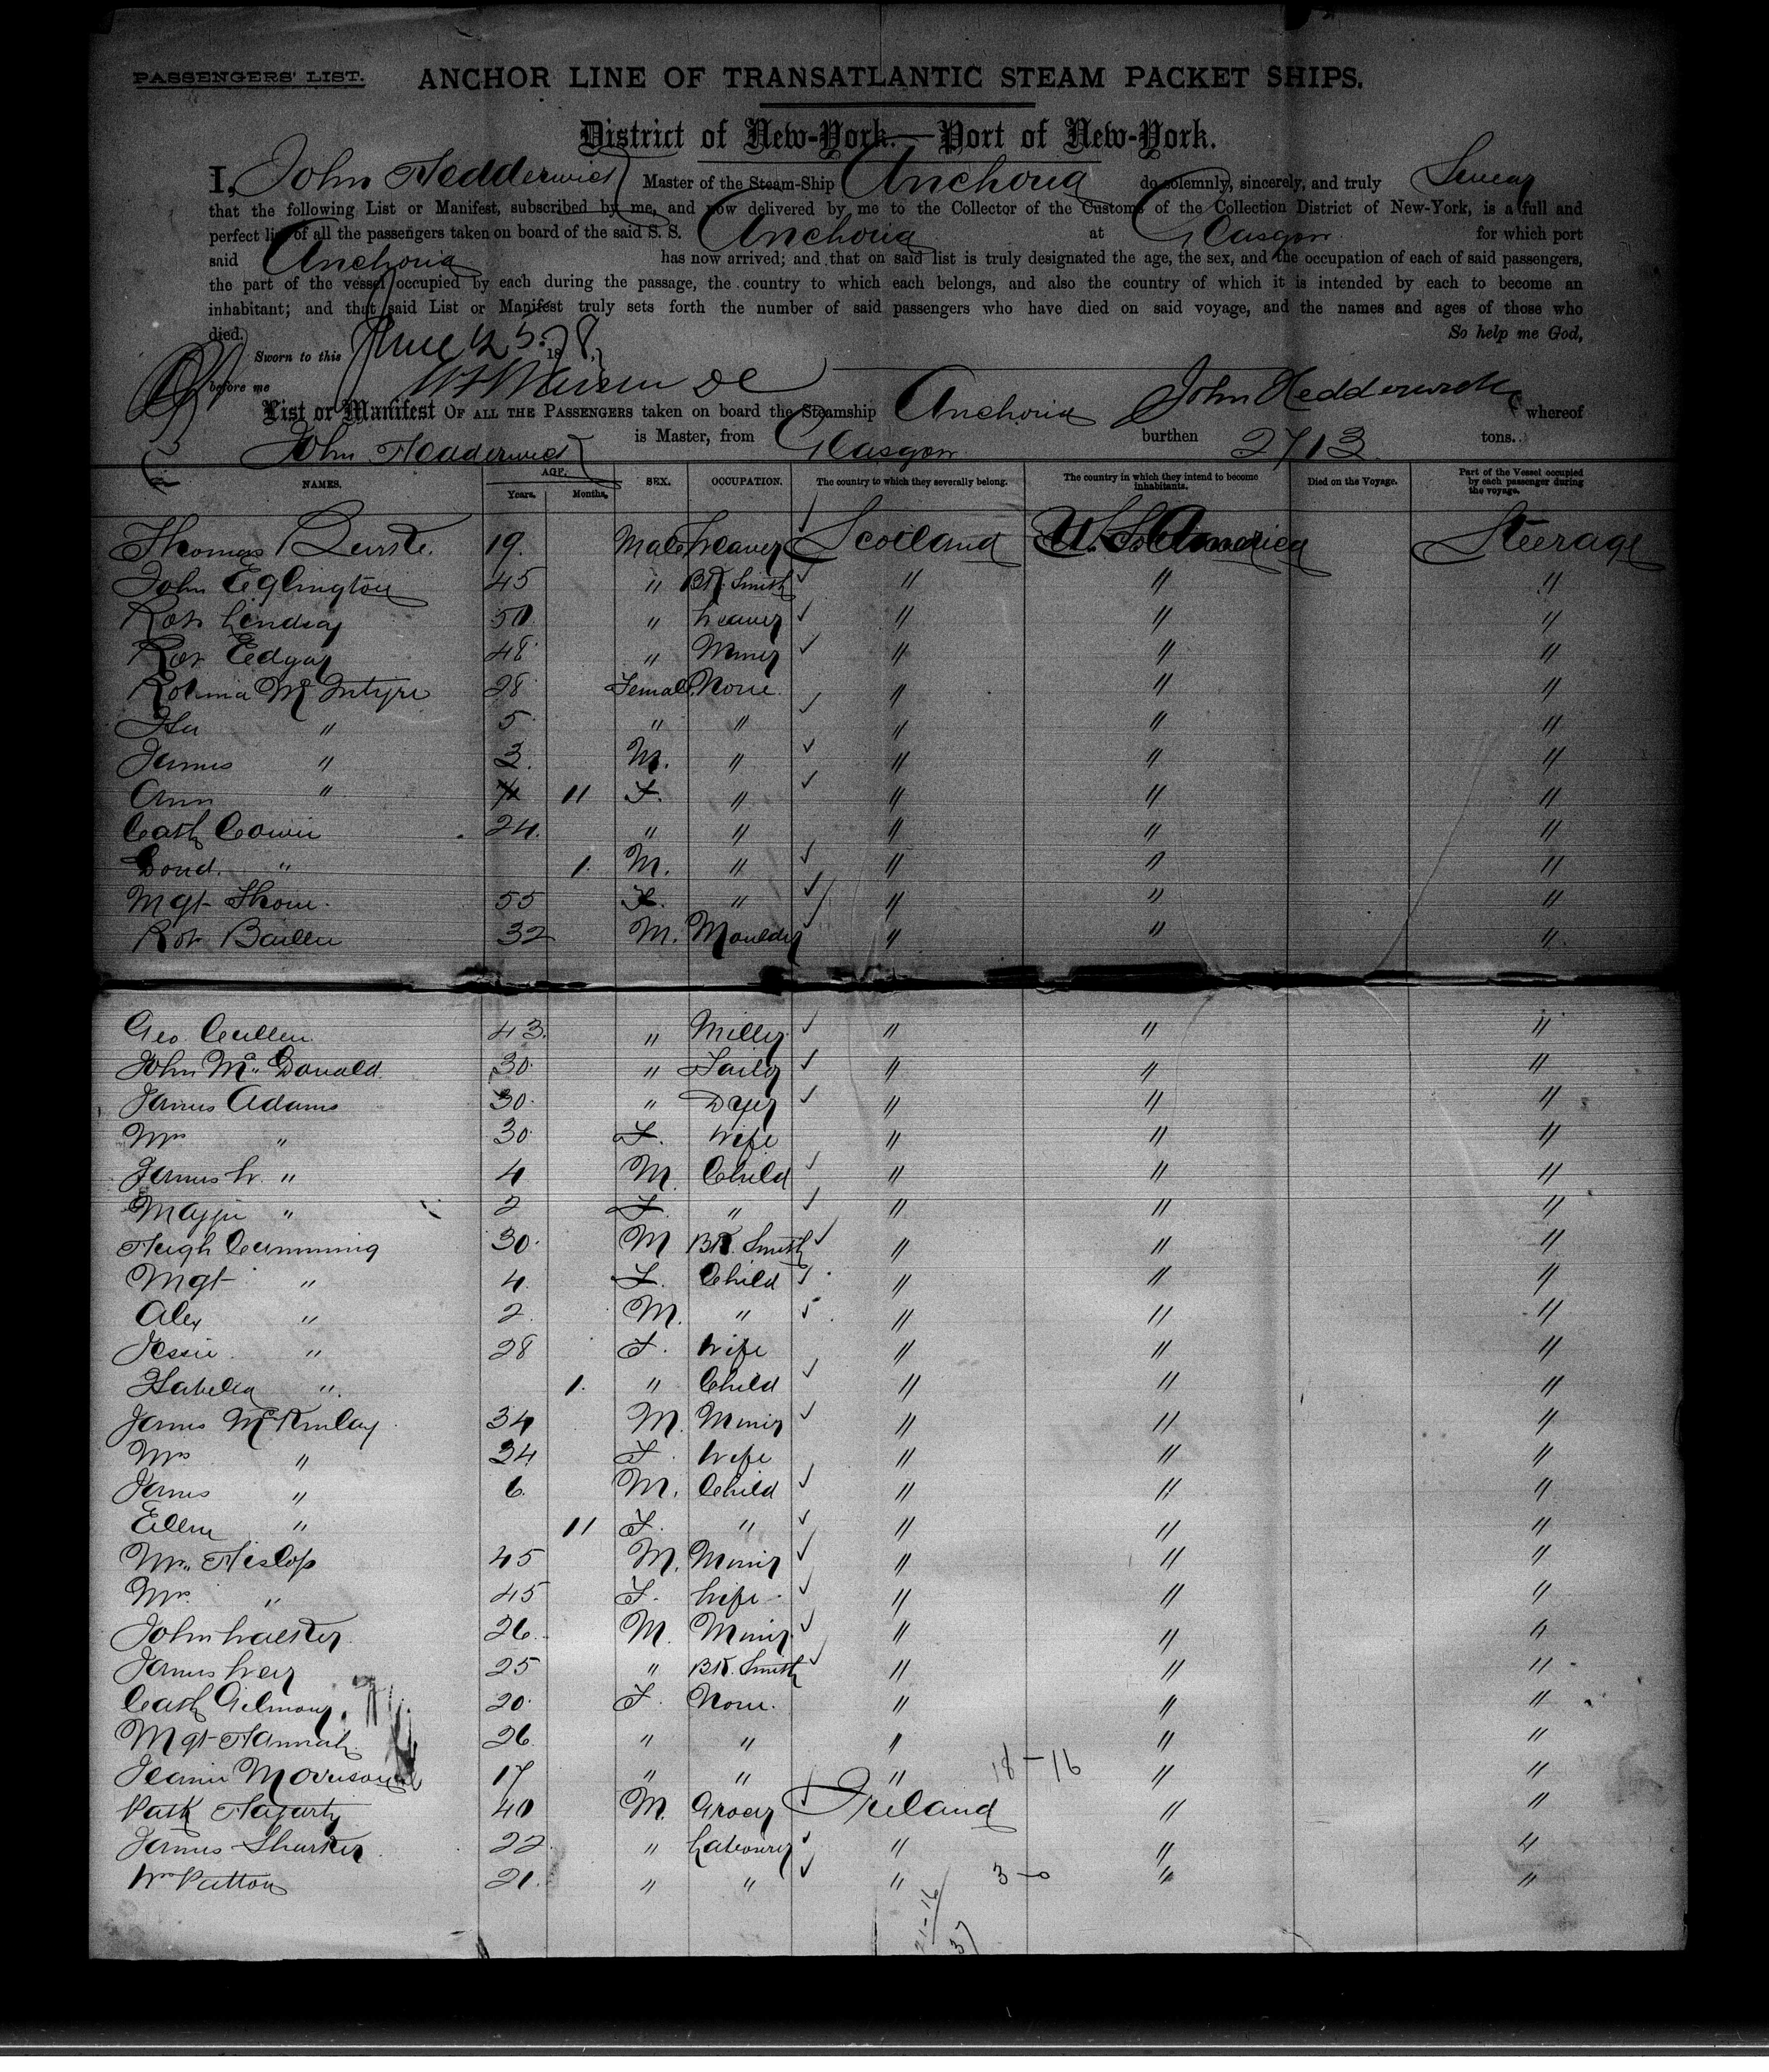 PASSENGERS' LIST. ANCHOR LINE OF TRANSATLANTIC STEAM PACKET SHIPS.
District of New-York.—Port of New-York.
I, John Hedderwick Master of the Steam-Ship Anchoria do solemnly, sincerely, and truly Swear
that the following List or Manifest, subscribed by me, and now delivered by me to the Collector of the Customs of the Collection District of New-York, is a full and
perfect list of all the passengers taken on board of the said S. S. Anchoria at Glasgow for which port
said Anchoria has now arrived; and that on said list is truly designated the age, the sex, and the occupation of each of said passengers,
the part of the vessel occupied by each during the passage, the country to which each belongs, and also the country of which it is intended by each to become an
inhabitant; and that said List or Manifest truly sets forth the number of said passengers who have died on said voyage, and the names and ages of those who
died. So help me God,
Sworn to this June 25. 1878,
before me John Hedderwick
List or Manifest OF ALL THE PASSENGERS taken on board the Steamship Anchoria whereof
John Hedderwick is Master, from Glasgow burthen 2713 tons.
NAMES. AGE. Years. Months. SEX. OCCUPATION. The country to which they severally belong. The country in which they intend to become inhabitants. Died on the Voyage. Part of the Vessel occupied by each passenger during the voyage.
Thomas 19. Male Weaver Scotland U.S. America Steerage
John Eglington 45 " Bk. Smith " " "
Robt Lindsay 50 " Weaver " " "
Robt Edgar 48 " Miner " " "
Robina McIntyre 28 Female None " " "
" 5 " " " " "
James " 3. M. " " " "
Ann " 11 F. " " " "
Cath Cowie 24. " " " " "
Dond. " 1. M. " " " "
Mgt Thom 55 F. " " " "
Robt Baillie 32 M. Moulder " " "
Geo. Cullen 43. " Miller " " "
John McDonald 30. " Tailor " " "
James Adams 30. " Dyer " " "
Mrs " 30 F. Wife " " "
James W. " 4 M. Child " " "
Maggie " 2 F. " " " "
Hugh Cumming 30. M Bk. Smith " " "
Mgt " 4. F. Child " " "
Alex " 2 M. " " " "
Jessie " 28 F. Wife " " "
Isabella " 1. " Child " " "
James McKinlay 34 M. Miner " " "
Mrs " 24 F. Wife " " "
James " 6. M. Child " " "
Ellen " 11 F. " " " "
Wm. Hislop 45 M. Miner " " "
Mrs. " 45 F. Wife " " "
John 26. M. Miner " " "
James Weir 25 " Bk. Smith " " "
Cath Gilmour 20. F. None. " " "
Mgt Hannah 26. " " " " "
Jeanie Morrison 17 " " " 18-16 " "
Patk Hagarty 40 M. Grocer Ireland " "
James Sharkey 22. " Labourer " " "
Wm Patton 21. " " " 3-0 " "
21-16
37